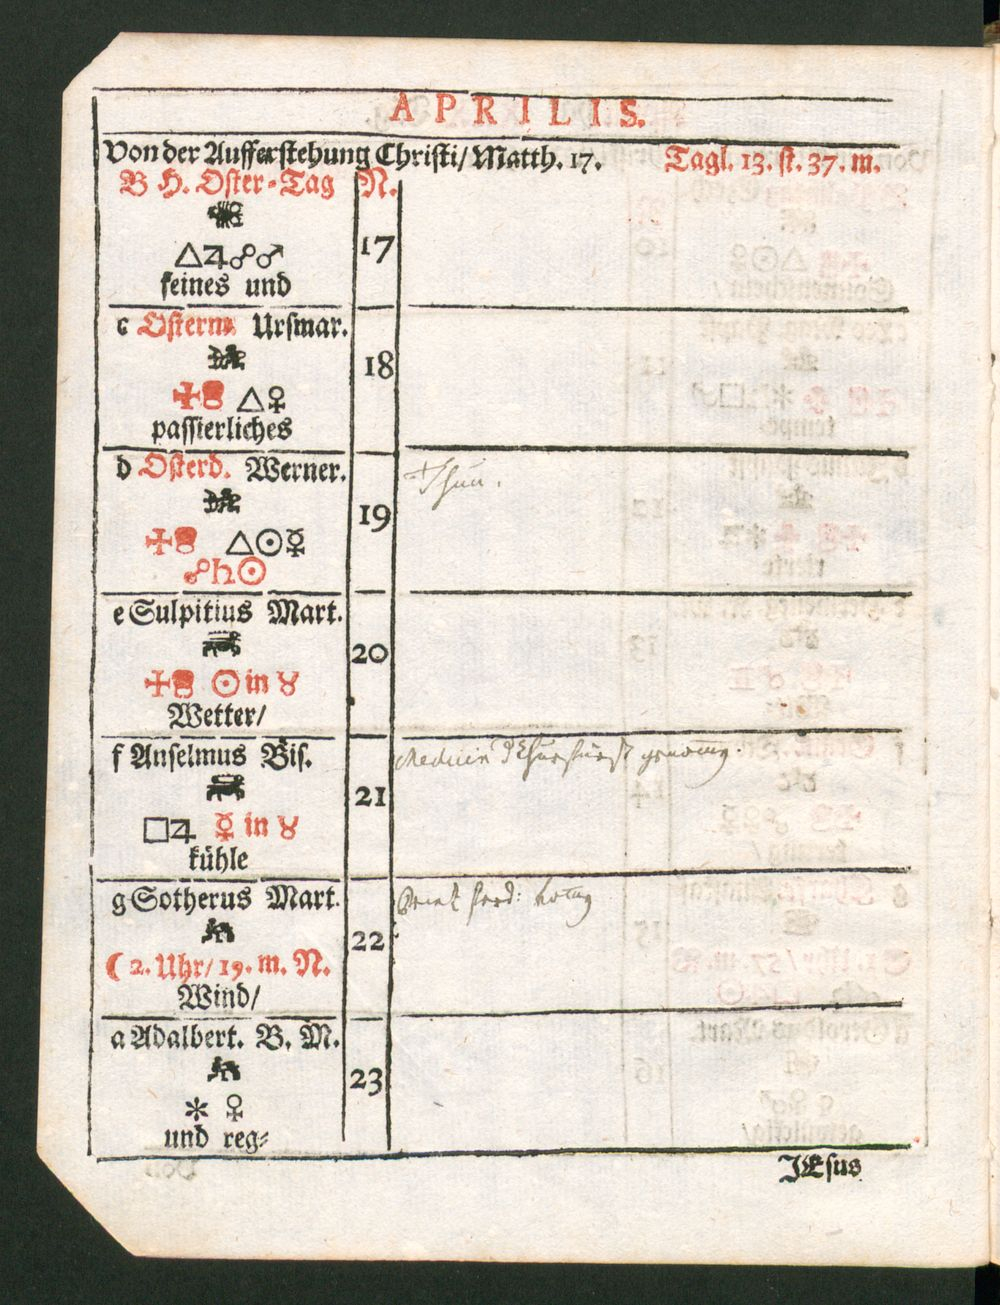 APRILIS.
Von der Aufferstehung Christi/ Matth. 17. Tagl. 13. st. 37. m.
B H. Oster-Tag N.
△♃☍♂ 17
feines und
c Osterm Ursmar.
18
△♀
passierliches
d Osterd. Werner.
19
△☉☿
☍♄☉
e Sulpitius Mart.
20
☉ in ♉
Wetter/
f Anselmus Bis.
21
□♃ ☿ in ♉
kühle
g Sotherus Mart.
22
☾ 2. Uhr/ 19. m. N.
Wind/
a Adalbert. B. M.
23
✻ ♀
und reg⸗
JEsus